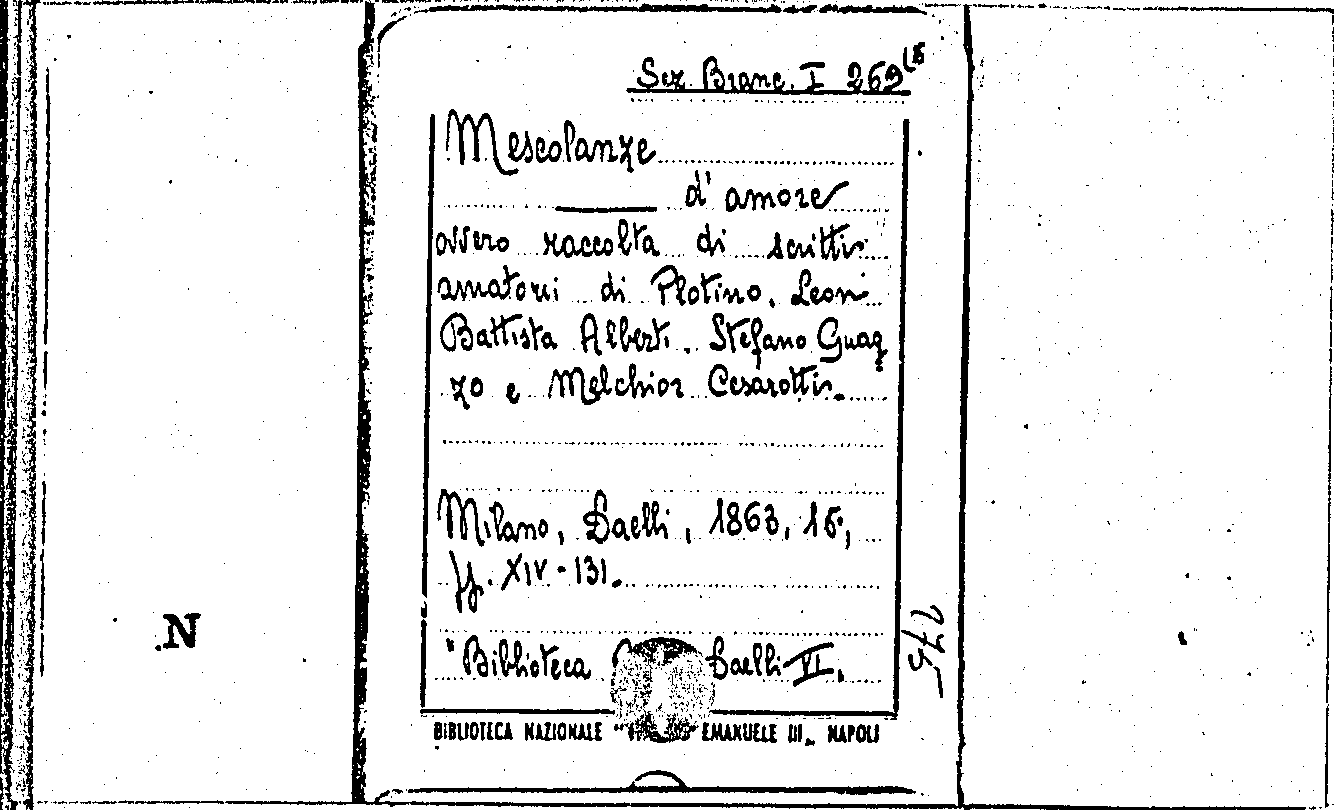 Sez. Branc. I 269
Mescolanze
d'amore
ovvero raccolta di scritti
amatorii di Plotino, Leon
Battista Alberti, Stefano Guaz
zo e Melchior Cesarotti.
Milano, Daelli, 1863, 16°,
pp. XIV-131.
"Biblioteca Daelli VI.
BIBLIOTECA NAZIONALE " EMANUELE III„ NAPOLI
N
275